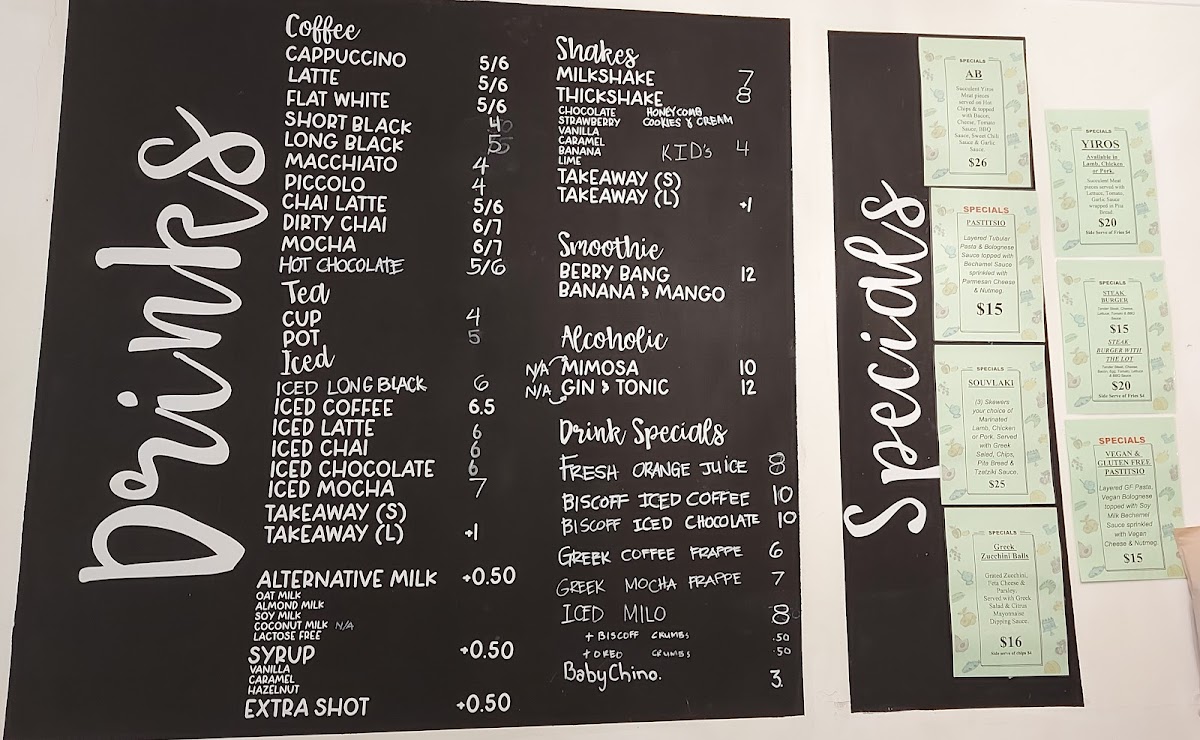 Drinks
Coffee
CAPPUCCINO 5/6
LATTE 5/6
FLAT WHITE 5/6
SHORT BLACK 4
LONG BLACK 5
MACCHIATO 4
PICCOLO 4
CHAI LATTE 5/6
DIRTY CHAI 6/7
MOCHA 6/7
HOT CHOCOLATE 5/6
Tea
CUP 4
POT 5
Iced
ICED LONG BLACK 6
ICED COFFEE 6.5
ICED LATTE 6
ICED CHAI 6
ICED CHOCOLATE 6
ICED MOCHA 7
TAKEAWAY (S)
TAKEAWAY (L) +1
ALTERNATIVE MILK +0.50
OAT MILK
ALMOND MILK
SOY MILK
COCONUT MILK N/A
LACTOSE FREE
SYRUP +0.50
VANILLA
CARAMEL
HAZELNUT
EXTRA SHOT +0.50
Shakes
MILKSHAKE 7
THICKSHAKE 8
CHOCOLATE HONEYCOMB
STRAWBERRY COOKIES & CREAM
VANILLA
CARAMEL
BANANA KID's 4
LIME
TAKEAWAY (S)
TAKEAWAY (L) +1
Smoothie
BERRY BANG 12
BANANA & MANGO
Alcoholic
N/A MIMOSA 10
N/A GIN & TONIC 12
Drink Specials
FRESH ORANGE JUICE 8
BISCOFF ICED COFFEE 10
BISCOFF ICED CHOCOLATE 10
GREEK COFFEE FRAPPE 6
GREEK MOCHA FRAPPE 7
ICED MILO 8
+ BISCOFF CRUMBS .50
+ OREO CRUMBS .50
BabyChino. 3.
Specials
SPECIALS
AB
Succulent Yiros
Meat pieces
served on Hot
Chips & topped
with Bacon,
Cheese, Tomato
Sauce, BBQ
Sauce, Sweet Chili
Sauce & Garlic
Sauce.
$26
SPECIALS
PASTITSIO
Layered Tubular
Pasta & Bolognese
Sauce topped with
Bechamel Sauce
sprinkled with
Parmesan Cheese
& Nutmeg.
$15
SPECIALS
SOUVLAKI
(3) Skewers
your choice of
Marinated
Lamb, Chicken
or Pork, Served
with Greek
Salad, Chips,
Pita Bread &
Tzatziki Sauce.
$25
SPECIALS
Greek
Zucchini Balls
Grated Zucchini,
Feta Cheese &
Parsley.
Served with Greek
Salad & Citrus
Mayonnaise
Dipping Sauce.
$16
Side serve of chips $4
SPECIALS
YIROS
Available in
Lamb, Chicken
or Pork.
Succulent Meat
pieces served with
Lettuce, Tomato,
Garlic Sauce
wrapped in Pita
Bread
$20
Side Serve of Fries $4
SPECIALS
STEAK
BURGER
Tender Steak, Cheese,
Lettuce, Tomato & BBQ
Sauce
$15
STEAK
BURGER WITH
THE LOT
Tender Steak, Cheese,
Bacon, Egg, Tomato, Lettuce
& BBQ Sauce
$20
Side Serve of Fries $4
SPECIALS
VEGAN &
GLUTEN FREE
PASTITSIO
Layered GF Pasta,
Vegan Bolognese
topped with Soy
Milk Bechamel
Sauce sprinkled
with Vegan
Cheese & Nutmeg.
$15